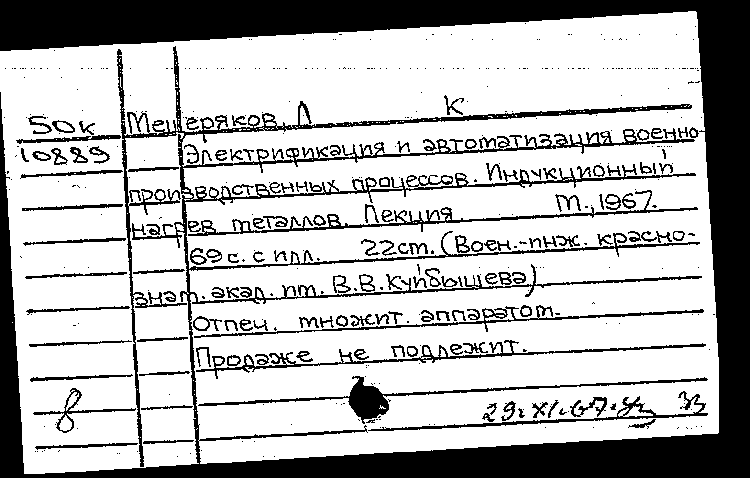 К
50к Мещеряков, Л
10889 Электрификация и автоматизация военно-
производственных процессов. Индукционный
нагрев металлов. Лекция. М., 1967.
69 с. с илл. 22см. (Воен.-инж. красно-
знам. акад. им. В.В.Куйбышева)
Отпеч. множит. аппаратом.
Продаже не подлежит.
8 29.XI.67.